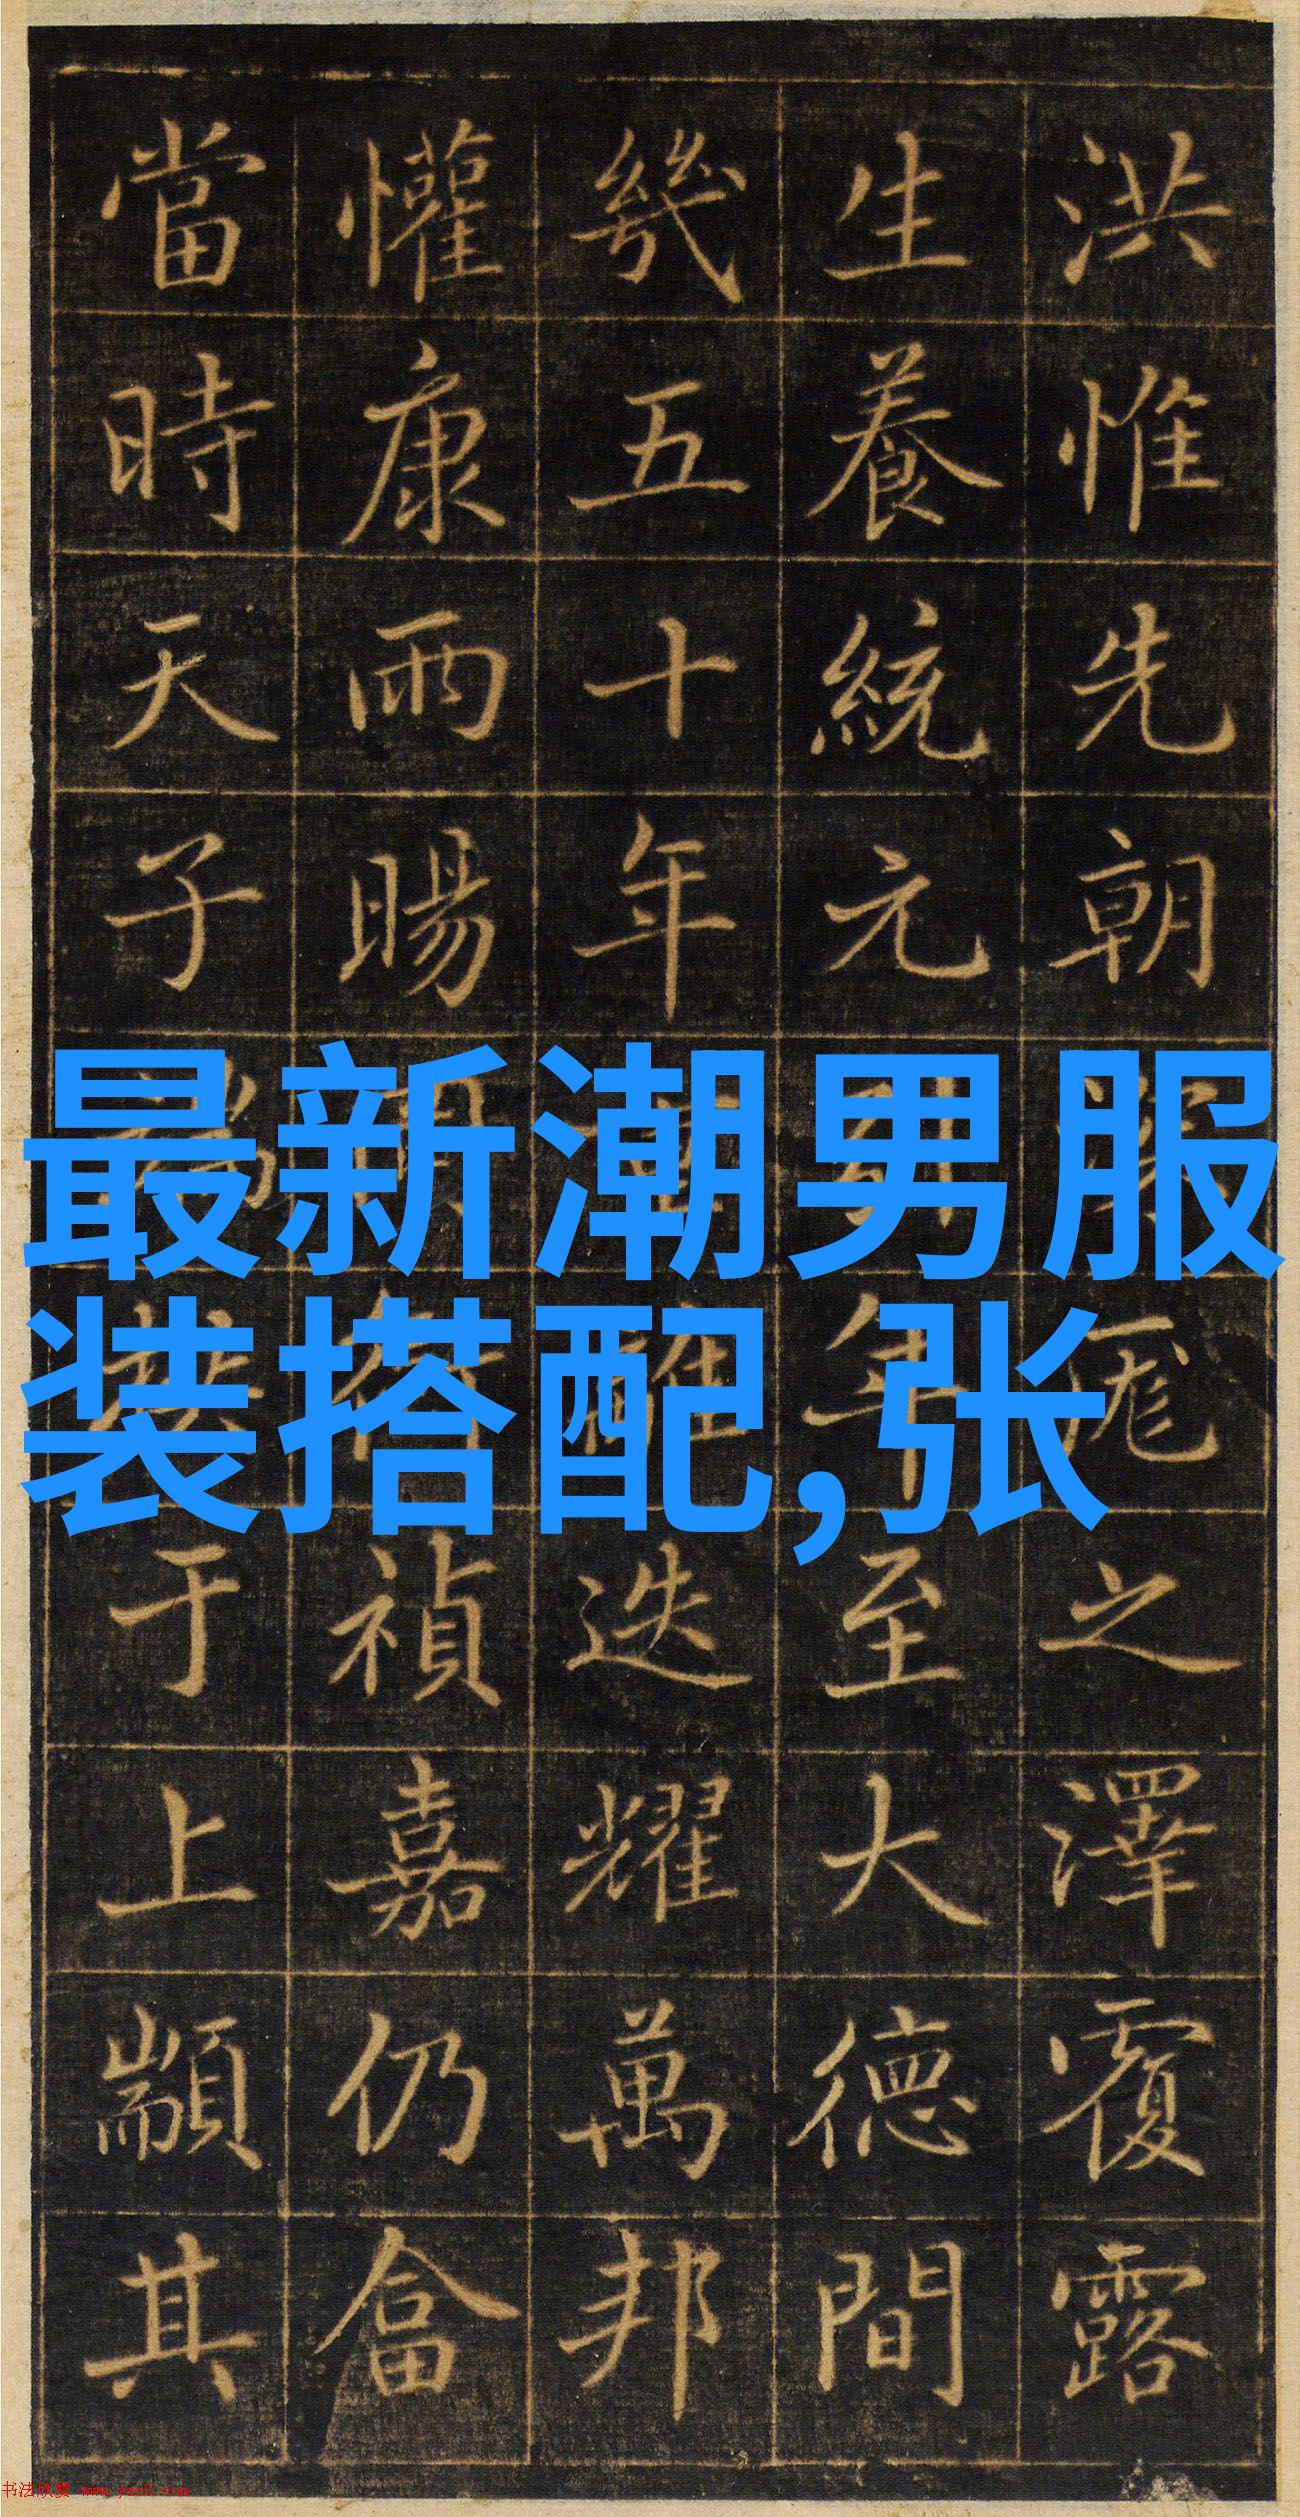 洪惟先朝之澤覆露
生養統元年至大德間
幾五十年迭耀萬邦
懽康雨暘禎嘉仍畣
當時天子于上顓其
最新潮男服
装搭配,张
书法欣赏 www.yac8.com